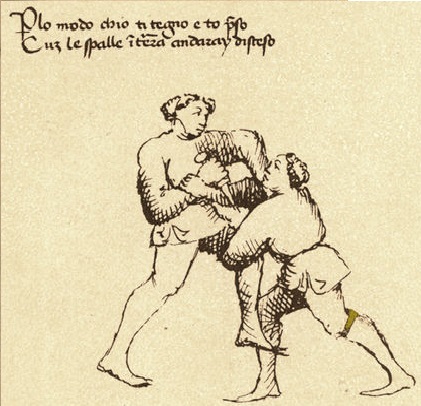 Plo modo chio ti tegno e to p̃so
Cuz le spalle ĩ tẽra andaray disteso